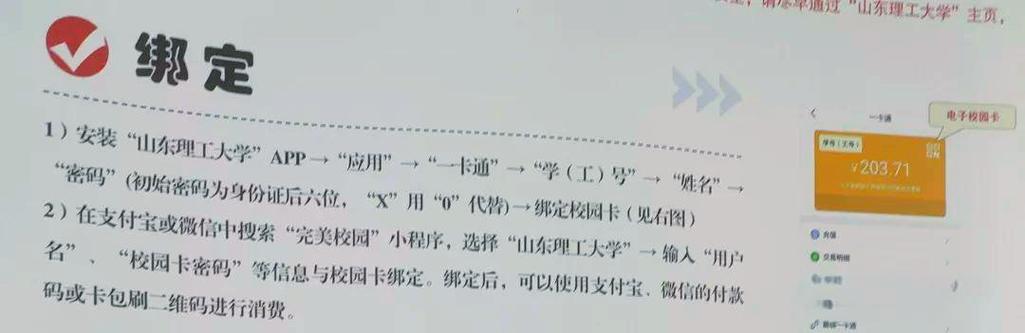 请尽早通过“山东理工大学”主页，
绑定
1）安装“山东理工大学”APP→“应用”→“一卡通”→“学（工）号”→“姓名”→
“密码”(初始密码为身份证后六位，“X”用“0”代替)→绑定校园卡（见右图）
2）在支付宝或微信中搜索“完美校园”小程序，选择“山东理工大学”→输入“用户
名”、“校园卡密码”等信息与校园卡绑定。绑定后，可以使用支付宝、微信的付款
码或卡包刷二维码进行消费。
电子校园卡
一卡通
学号（工号）
¥203.71
充值
交易明细
解绑一卡通